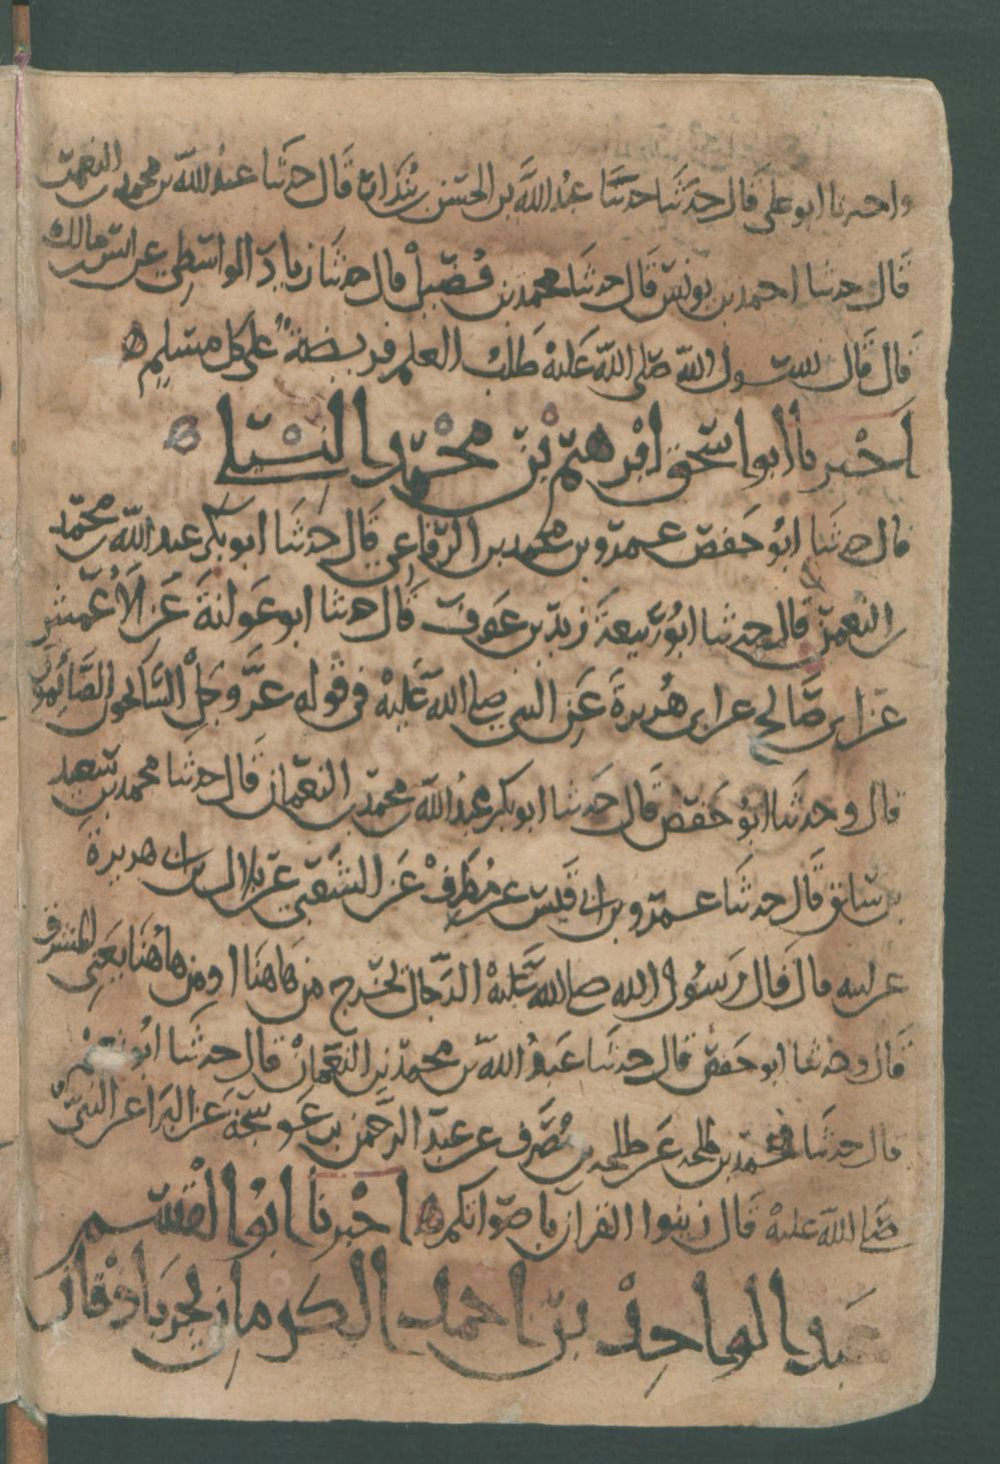 واخبرنا ابو علي قال حدثنا حدثنا عبد الله بن الحسن بن بندار قال حدثنا عبد الله بن محمد بن النعمن
قال حدثنا احمد بن يونس قال حدثنا محمد بن فضيل قال حدثنا زياد الواسطي عن انس بن مالك
قال قال رسول الله صلى الله عليه طلب العلم فريضة على كل مسلم
اخبرنا ابو اسحق ابرهيم بن محمد
قال حدثنا ابو حفص عمرو بن محمد بن الرفاعي قال حدثنا ابو بكر عبد الله بن محمد
النعمن قال حدثنا ابو ربيعة زيد بن عوف قال حدثنا ابو عوانة عن الاعمش
عن ابي صالح عن ابي هريرة عن النبي صلى الله عليه في قوله عز وجل السائحون الصائمون
قال وحدثنا ابو حفص قال حدثنا ابو بكر عبد الله بن محمد بن النعمان قال حدثنا محمد بن سعيد
بن سابق قال حدثنا عمرو بن ابي قيس عن مطرف عن الشعبي عن بلال بن ابي هريرة
عن ابيه قال قال رسول الله صلى الله عليه الدجال يخرج من هاهنا او من هاهنا يعني المشرق
قال وحدثنا ابو حفص قال حدثنا عبد الله بن محمد بن النعمان قال حدثنا ابو نعيم
قال حدثنا محمد بن طلحة عن طلحة بن مصرف عن عبد الرحمن بن عوسجة عن البراء عن النبي
صلى الله عليه قال زينوا القران باصواتكم اخبرنا ابو القسم
عبد الواحد بن احمد الكرماني